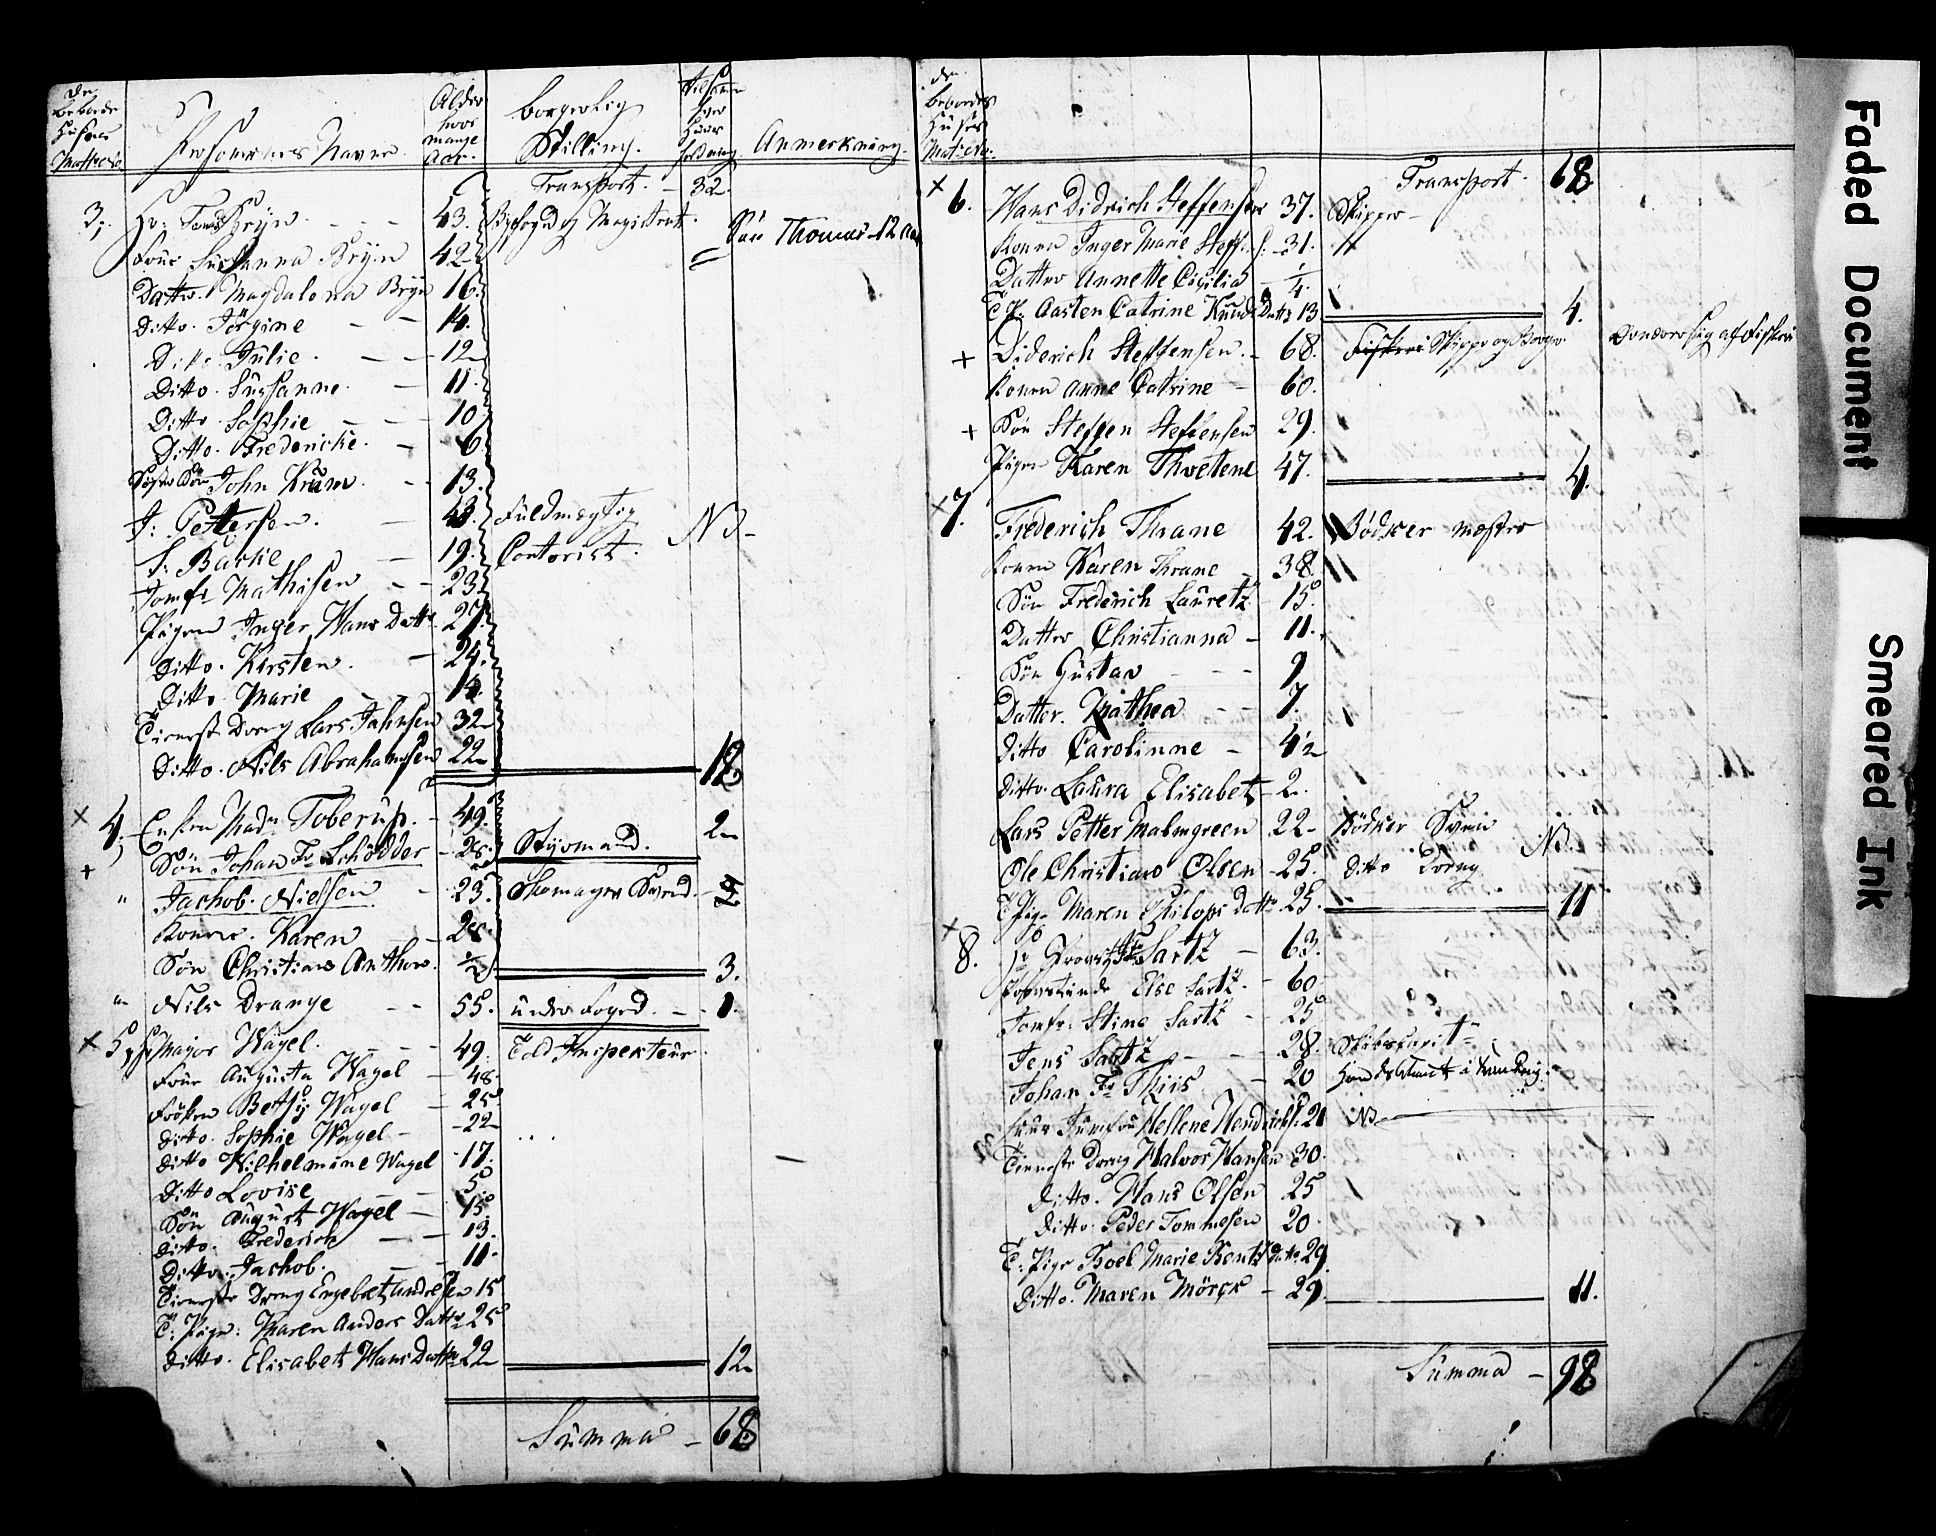 De
beboede
Huses
Matr: No
Personernes Navne.
Alder
hvor
mange
Aar.
borgerlig
Stilling.
Anmerkning.
Transport. - 32.
3. Hr: Bryn - - 43. Byefoged og Magistrat. Søn Thomas 12 Aar
Frue Susanna Bryn 42
Datter. Magdalena Bryn 16.
Ditto. Jörgine - - 14.
Ditto. Julie. - - 12
Ditto. Sussanne. - 11.
Ditto Sophie - - 10
Ditto. Fredericke. - 6
Søster Søn John Kram. - 13.
J: Pettersen. - 43. Fuldmægtig
S: Backe - 19. Contorist. NB-
Jomfr Mathisen - - 23
Pigen Inger Hans Dattr 27.
Ditto. Kirsten. - 24.
Ditto. Marie 14.
Tieneste Dreng Lars Jahnsen 32
Ditto. Nils Abrahamsen 22 18
× 4. Enken Mad: Toberup. - 49. 2
+ Søn Johan Fr Schödder - 28. Styrmand.
" Jachob. Nielsen - 23. Skomager Svend. -
Konen. Karen - 28.
Søn Christian Anthon. ½ 3.
" Nils Drange - - 55. under Foged. - - 1.
× 5. Hr Major Wagel. - 49. Told Inspekteur.
Frue Augusta Wagel - 48.
Fröken Betsy Wagel - 25
Ditto. Sophie Wagel - 22
Ditto Wilhelmine Wagel - 17.
Ditto Lovise - - 5
Søn August Wagel - 15
Ditto. Frederick - - 13.
Ditto. Jachob. - - 11.
Tieneste Dreng Engebret Andresen 15
T: Pige: Maren Anders Datter 25
Ditto. Elisabet Hans Datter 22 12
Summa - 68
de
beboedes
Huses
Matr: No.
Transport. 68.
× 6. Hans Didrich Steffensen 37. Skipper -
Konen Inger Marie Steff: - 31. "
Datter Annette Cicilia - ¼.
T P: Aasten Catrine Knuds Dattr 13. 4.
+ Diderich Steffensen. - 68. Fiskeri Skipper og Borger.
Konen Anne Catrine - 60.
+ Søn Steffen Steffensen 29.
Pigen Karen Thvetene 47. 4.
× 7. Frederich Thrane 42. Bödker mester
Konen Karen Thrane - 38.
Søn Frederich Lauretz - 15.
Datter Christianna - 11.
Søn Gustav - - 9
Datter. Mathea - - 7.
Ditto Carolinne - 4½
Ditto. Laura Elisabet - 2.
Lars Petter Malmgreen 22 Bödker Svend NB.
Ole Christian Olsen - 25. Ditto Dreng
T Pige Maren Philops Dattr 25. 11
× 8. Hr Provst Sartz - 63.
Else Sartz. - 60
Jomfr: Stine Sartz - 25
Jens Sartz - - 28.
Johan Fr Thiis - 20
Jumfru Hellene Hendrichs: 20 NB
Tieneste Dreng Halvor Hansen 30.
Ditto. Hans Olsen 25
Ditto. Peder Tommesen 20.
T: Pige Boel Marie Bentz Datter 29.
Ditto. Maren Mörck - 29. 11.
Summa - 98
Faded Document
Smeared Ink